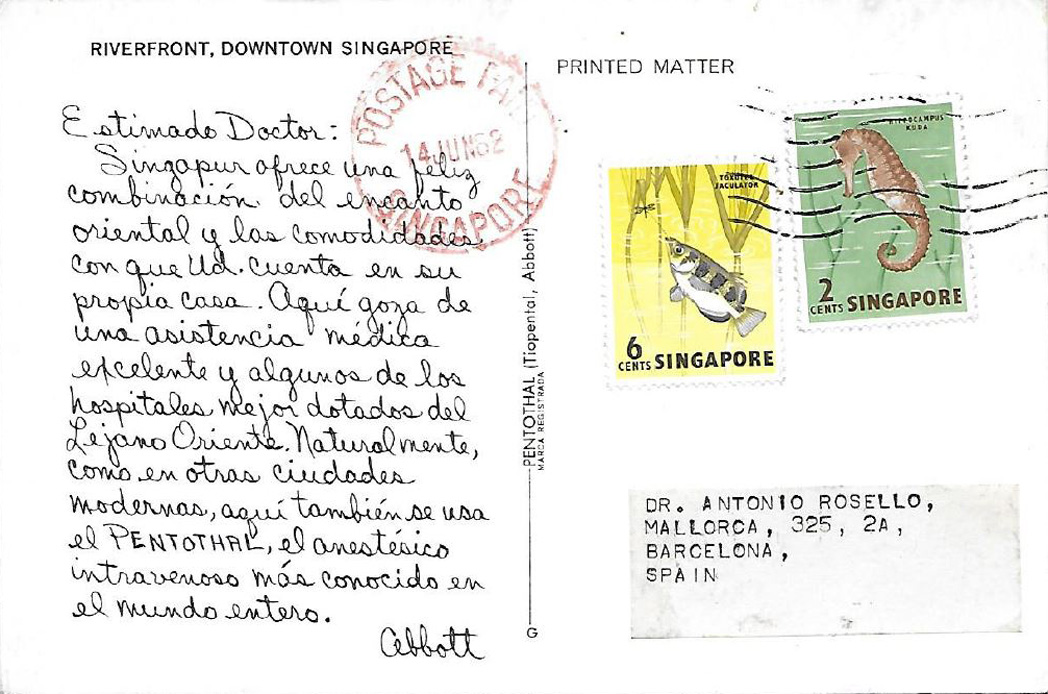 RIVERFRONT, DOWNTOWN SINGAPORE
Estimado Doctor:
Singapur ofrece una feliz
combinación del encanto
oriental y las comodidades
con que Ud. cuenta en su
propia casa. Aquí goza de
una asistencia médica
excelente y algunos de los
hospitales mejor dotados del
Lejano Oriente. Naturalmente,
como en otras ciudades
modernas, aquí también se usa
el PENTOTHAL, el anestésico
intravenoso más conocido en
el mundo entero.
Abbott
POSTAGE PAID
14 JUN 62
SINGAPORE
PENTOTHAL (Tiopental, Abbott)
MARCA REGISTRADA
G
PRINTED MATTER
TOXOTES
JACULATOR
6
CENTS SINGAPORE
HIPPOCAMPUS
KUDA
2
CENTS SINGAPORE
DR. ANTONIO ROSELLO,
MALLORCA, 325, 2A,
BARCELONA,
SPAIN